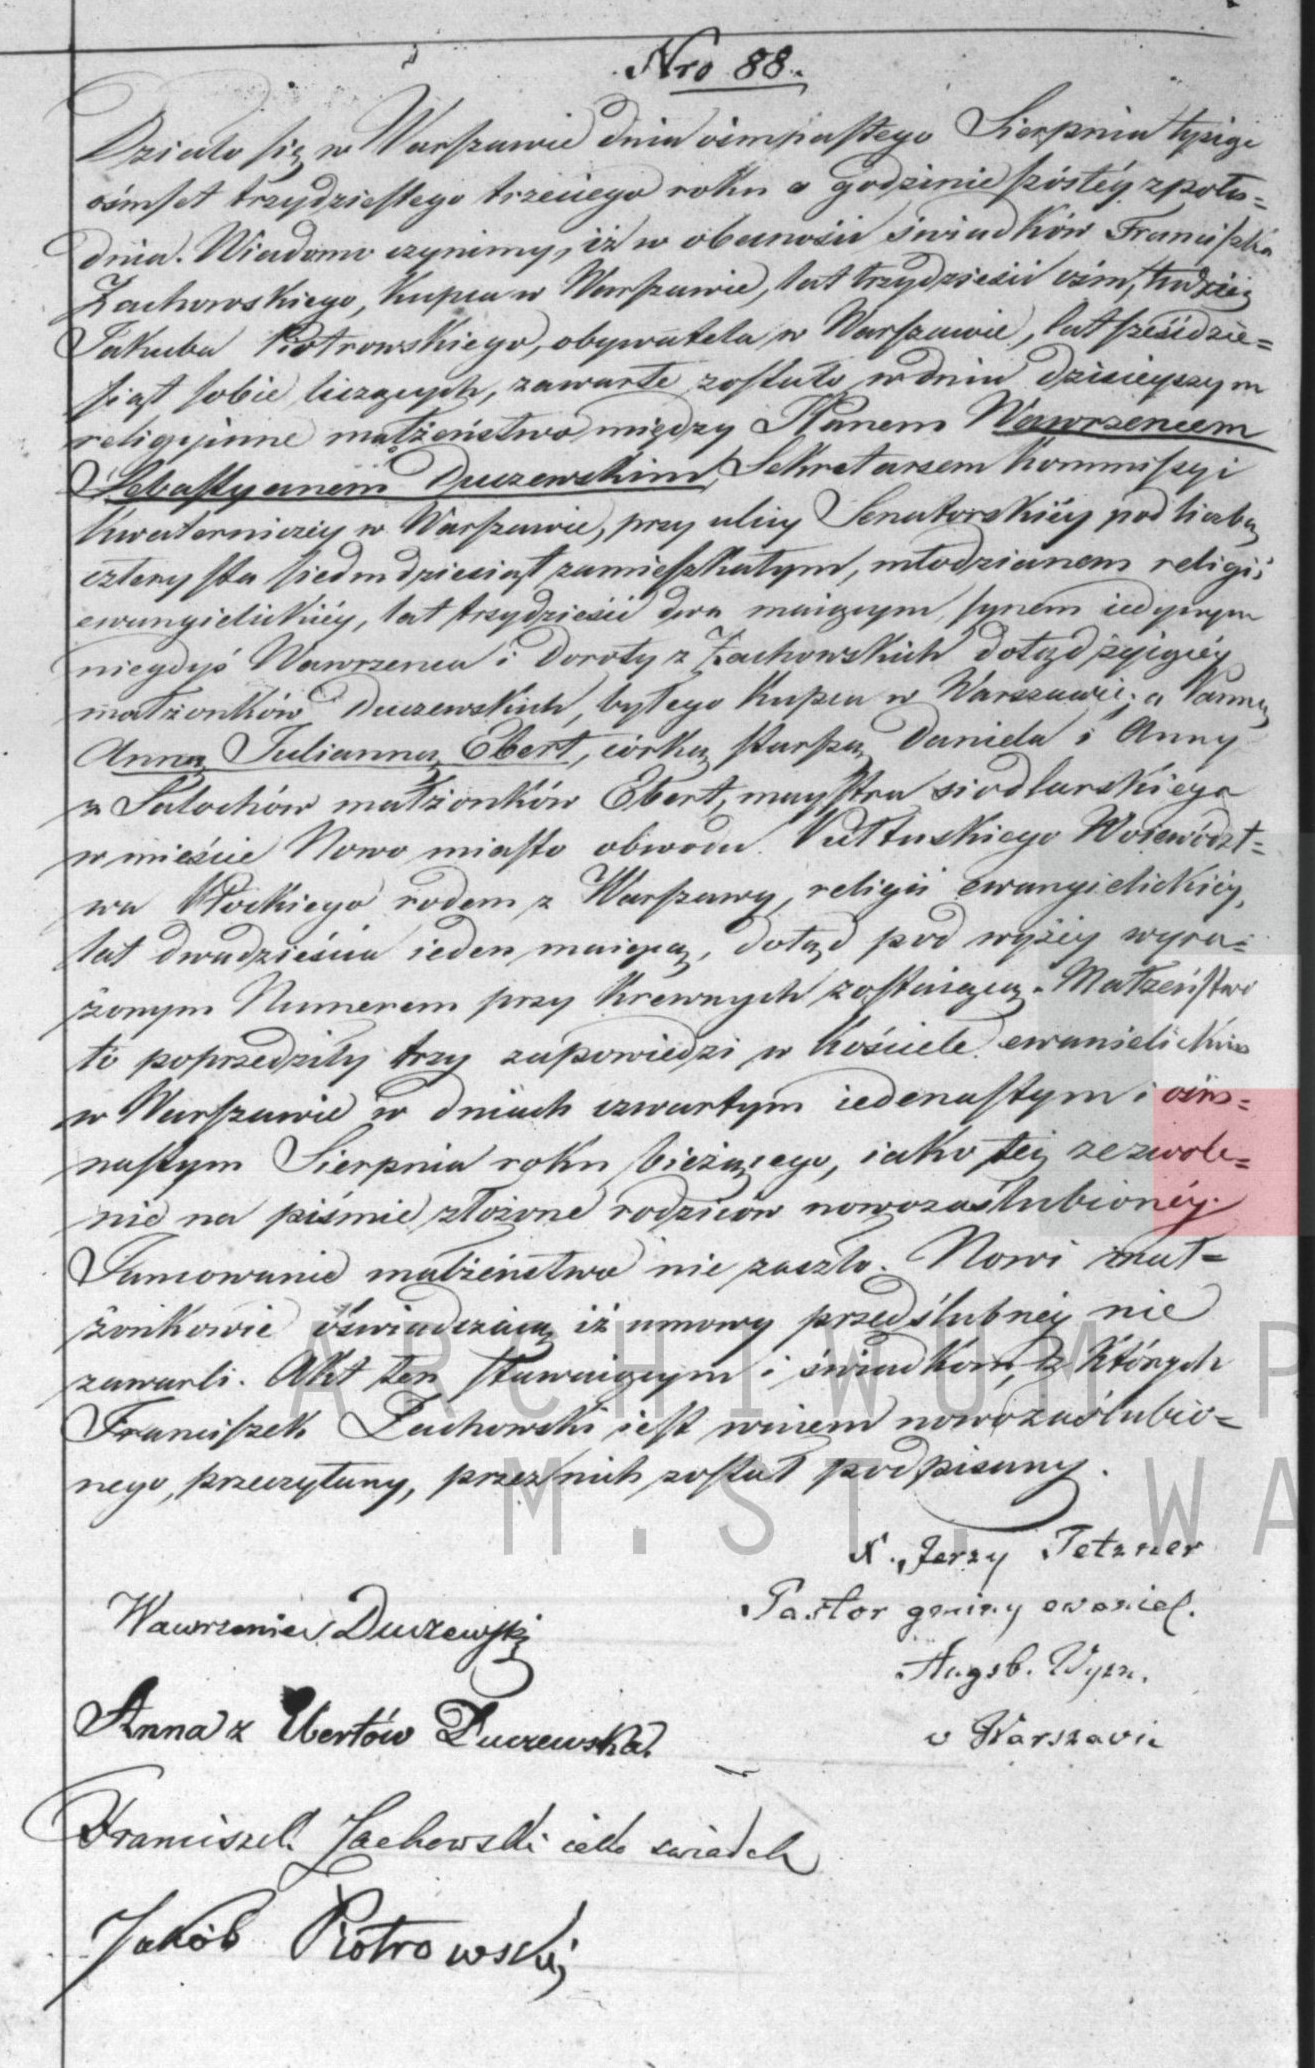 Nro 88.
Działo się w Warszawie dnia ośmnastego Sierpnia tysiąc
ośmset trzydziestego trzeciego roku o godzinie szóstéy z połu=
dnia. Wiadomo czynimy, iż w obecności świadków Franciszka
Zachowskiego, kupca w Warszawie, lat trzydzieści ośm, tudzież
Jakuba Piotrowskiego, obywatela w Warszawie, lat sześćdzie=
siąt sobie liczących, zawarte zostało w dniu dzisieyszym
religiyinne małżeństwo między Panem Wawrzencem
Sebastyanem Duczewskim, Sekretarzem Kommissyi
kwaterniczéy w Warszawie, przy ulicy Senatorskiéy pod liczbą
czterysta siedmdziesiąt zamieszkałym, młodzianem religii
ewangielickiéy, lat trzydzieści dwa maiącym, synem iedynym
niegdyś Wawrzenca i Doroty z Zachowskich dotąd żyiącéy
małżonków Duczewskich, byłego kupca w Warszawie; a Panną
Anną Julianną Ebert, córką starszą Daniela i Anny
z Salochów małżonków Ebert, maystra siodlarskiego
w mieście Nowo miasto obwodu Pułtuskiego Woiewództ=
wa Płockiego rodem z Warszawy, religii ewangielickiéy,
lat dwadzieścia ieden maiącą, dotąd pod wyżéy wyra=
żonym Numerem przy krewnych zostaiącą. Małżeństwo
to poprzedziły trzy zapowiedzi w kościele ewanielickim
w Warszawie w dniach czwartym iedenastym i ośm=
nastym Sierpnia roku bieżącego, iako też zezwole=
nie na piśmie złożone rodziców nowozaślubionéy.
Tamowanie małżeństwa nie zaszło. Nowi mał=
żonkowie oświadczaią iż umowy przedślubnéy nie
zawarli. Akt ten stawaiącym i świadkom, z których
Franciszek Zachowski iest wuiem nowozaślubio=
nego, przeczytany, przez nich został podpisany.
X. Jerzy Tetzner
Pastor gminy ewaniel.
Augsb. Wyzn.
w Warszawie
Wawrzeniec Duczewski
Anna z Ebertów Duczewska.
Franciszek Zachowski iako swiadek
Jakób Piotrowski
ARCHIWUM P
M.ST. WA